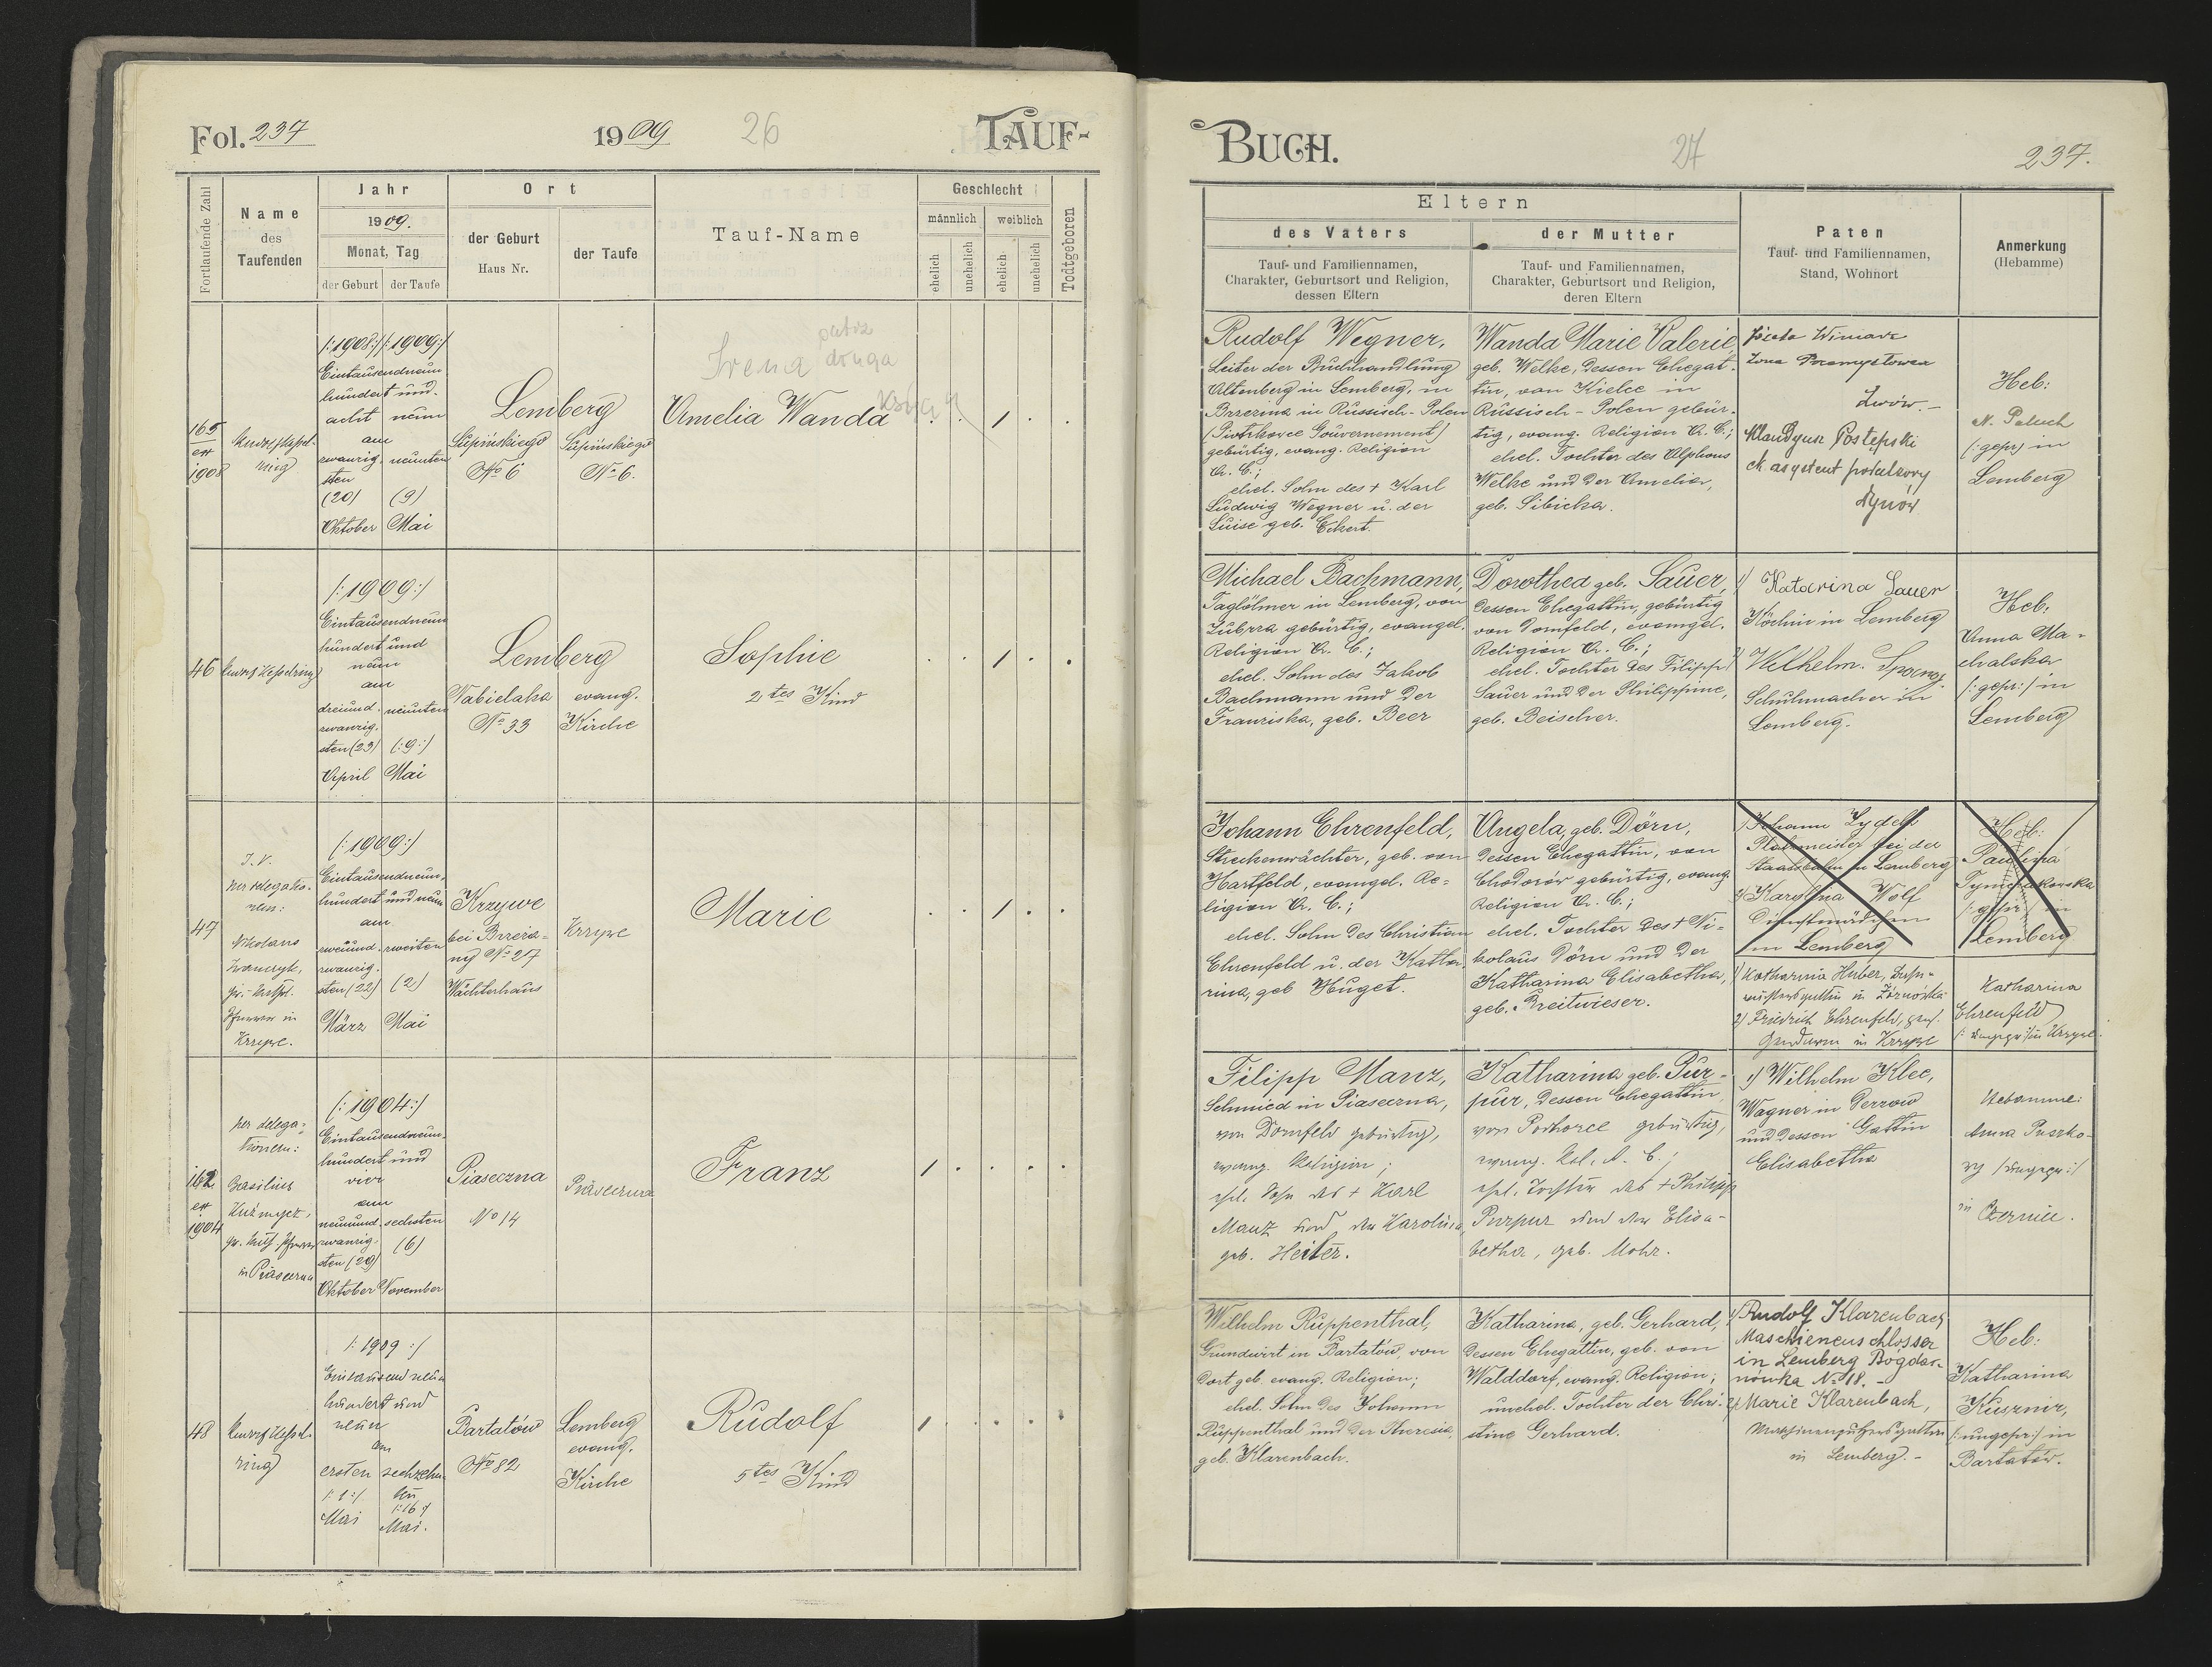 Fol. 237
1909
26
TAUF-
Fortlaufende Zahl
Name
des
Taufenden
Jahr
1909.
Monat, Tag
der Geburt
der Taufe
Ort
der Geburt
Haus Nr.
der Taufe
Tauf-Name
Geschlecht
männlich
weiblich
ehelich
unehelich
ehelich
unehelich
Todtgeboren
165
ex
1908
/:1908:/ /:1909:/
Eintausendneun
hundert und
acht neun
am
zwanzig- neunten
sten
(20) (9)
Oktober Mai
Lemberg
Supińskiego Supińskiego
No 6 No 6.
Irena
druga
Amelia Wanda
46
/:1909:/
Eintausendneun
hundert und
neun
am
dreiund- neunten
zwanzig-
sten (23) (:9:)
April Mai
Lemberg
Nabielaka evang.
No 33 Kirche
Sophie
2tes Kind
47
I. V.
per delegatio-
nem:
Nikolaus
Pfarrer in
Krzywe.
(:1909:)
Eintausendneun-
hundert und neun
am
zweiund- zweiten
zwanzig-
sten (22) (2)
März Mai
Krzywe
bei Brzeża-
ny No 27
Wächterhaus
Krzywe
Marie
162
ex
1904
per delega-
tionem:
Basilius
in Piaseczna
(:1904:)
Eintausendneun-
hundert und
vier
am
neunund- sechsten
zwanzig-
sten (29) (6)
Oktober November
Piaseczna
No 14
Piaseczna
Franz
48
/:1909:/
Eintausend neun
hundert und
neun
am
ersten sechzehn-
ten
/:1:/ /:16:/
Mai Mai.
Bartatów
No 82
Lemberg
evang.
Kirche
Rudolf
5tes Kind
BUCH.
27
237.
Eltern
des Vaters
Tauf- und Familiennamen,
Charakter, Geburtsort und Religion,
dessen Eltern
der Mutter
Tauf- und Familiennamen,
Charakter, Geburtsort und Religion,
deren Eltern
Paten
Tauf- und Familiennamen,
Stand, Wohnort
Anmerkung
(Hebamme)
Rudolf Wegner,
Leiter der Buchhandlung
Altenberg in Lemberg, in
Brzezina in Russisch-Polen
(Piotrkower Gouvernement)
gebürtig, evang. Religion
A. C.;
ehel. Sohn des † Karl
Ludwig Wegner u. der
Luise geb. Eckert.
Wanda Marie Valerie
geb. Welke, dessen Ehegat-
tin, von Kielce in
Russisch-Polen gebür-
tig, evang. Religion A. C.;
ehel. Tochter des Alphons
Welke und der Amelia,
geb. Sibicka.
Lwów.-
Klaudyusz Postępski
Dynów
Heb:
(:gepr:) in
Lemberg
Michael Bachmann,
Taglöhner in Lemberg, von
Zubrza gebürtig, evangel.
Religion A. C.;
ehel. Sohn des Jakob
Bachmann und der
Franziska, geb. Beer
Dorothea geb. Sauer,
dessen Ehegattin, gebürtig
von Dornfeld, evangel.
Religion A. C.;
ehel. Tochter des Filipp
Sauer und der Philippine,
geb. Beischer.
1) Katarina Sauer
Köchin in Lemberg
2) Wilhelm
Schuhmacher in
Lemberg.
Heb:
Anna Ma-
chalska
(:gepr:) in
Lemberg
Johann Ehrenfeld,
Streckenwächter, geb. von
Hartfeld, evangel. Re-
ligion A. C.;
ehel. Sohn des Christian
Ehrenfeld u. der Katha-
rina, geb Huget.
Angela, geb. Dörn,
dessen Ehegattin, von
Chodorów gebürtig, evang.
Religion A. C.;
ehel. Tochter des † Ni-
kolaus Dörn und der
Katharina Elisabetha,
geb. Breitwieser.
1) Johann
Platzmeister bei der
Staatsbahn in Lemberg
2) Karolina Wolf
Dienstmädchen
in Lemberg
1) Katharina Huber,
2) Friedrich Ehrenfeld,
Gendarm in Krzywe
Heb:
Paulina
(:gepr:) in
Lemberg
Katharina
Ehrenfeld
(:ungepr:) in Krzywe.
Filipp Manz,
Schmied in Piaseczna,
von Dornfeld gebürtig,
evang. Religion;
ehel. Sohn des † Karl
Manz und der Karolina,
geb. Heiter.
Katharina geb. Pur-
pur, dessen Ehegattin
von Podhorce gebürtig,
evang. Rel. A. C.;
ehel. Tochter des † Philipp
Purpur und der Elisa-
betha, geb. Mohr.
1) Wilhelm Klee,
Wagner in Derzow
und dessen Gattin
Elisabetha
Hebamme:
Anna Puszka-
in
Wilhelm Ruppenthal,
Grundwirt in Bartatów, von
dort geb. evang. Religion;
ehel. Sohn des Johann
Ruppenthal und der Theresia,
geb. Klarenbach.
Katharina, geb. Gerhard,
dessen Ehegattin, geb. von
Walddorf, evang. Religion;
unehel. Tochter der Chri-
stine Gerhard.
1) Rudolf Klarenbach
Maschienenschlosser
in Lemberg Bogdar-
nówka No 18.-
2) Marie Klarenbach,
in Lemberg.-
Heb:
Katharina
Kusznir,
(:ungepr:) in
Bartatów.